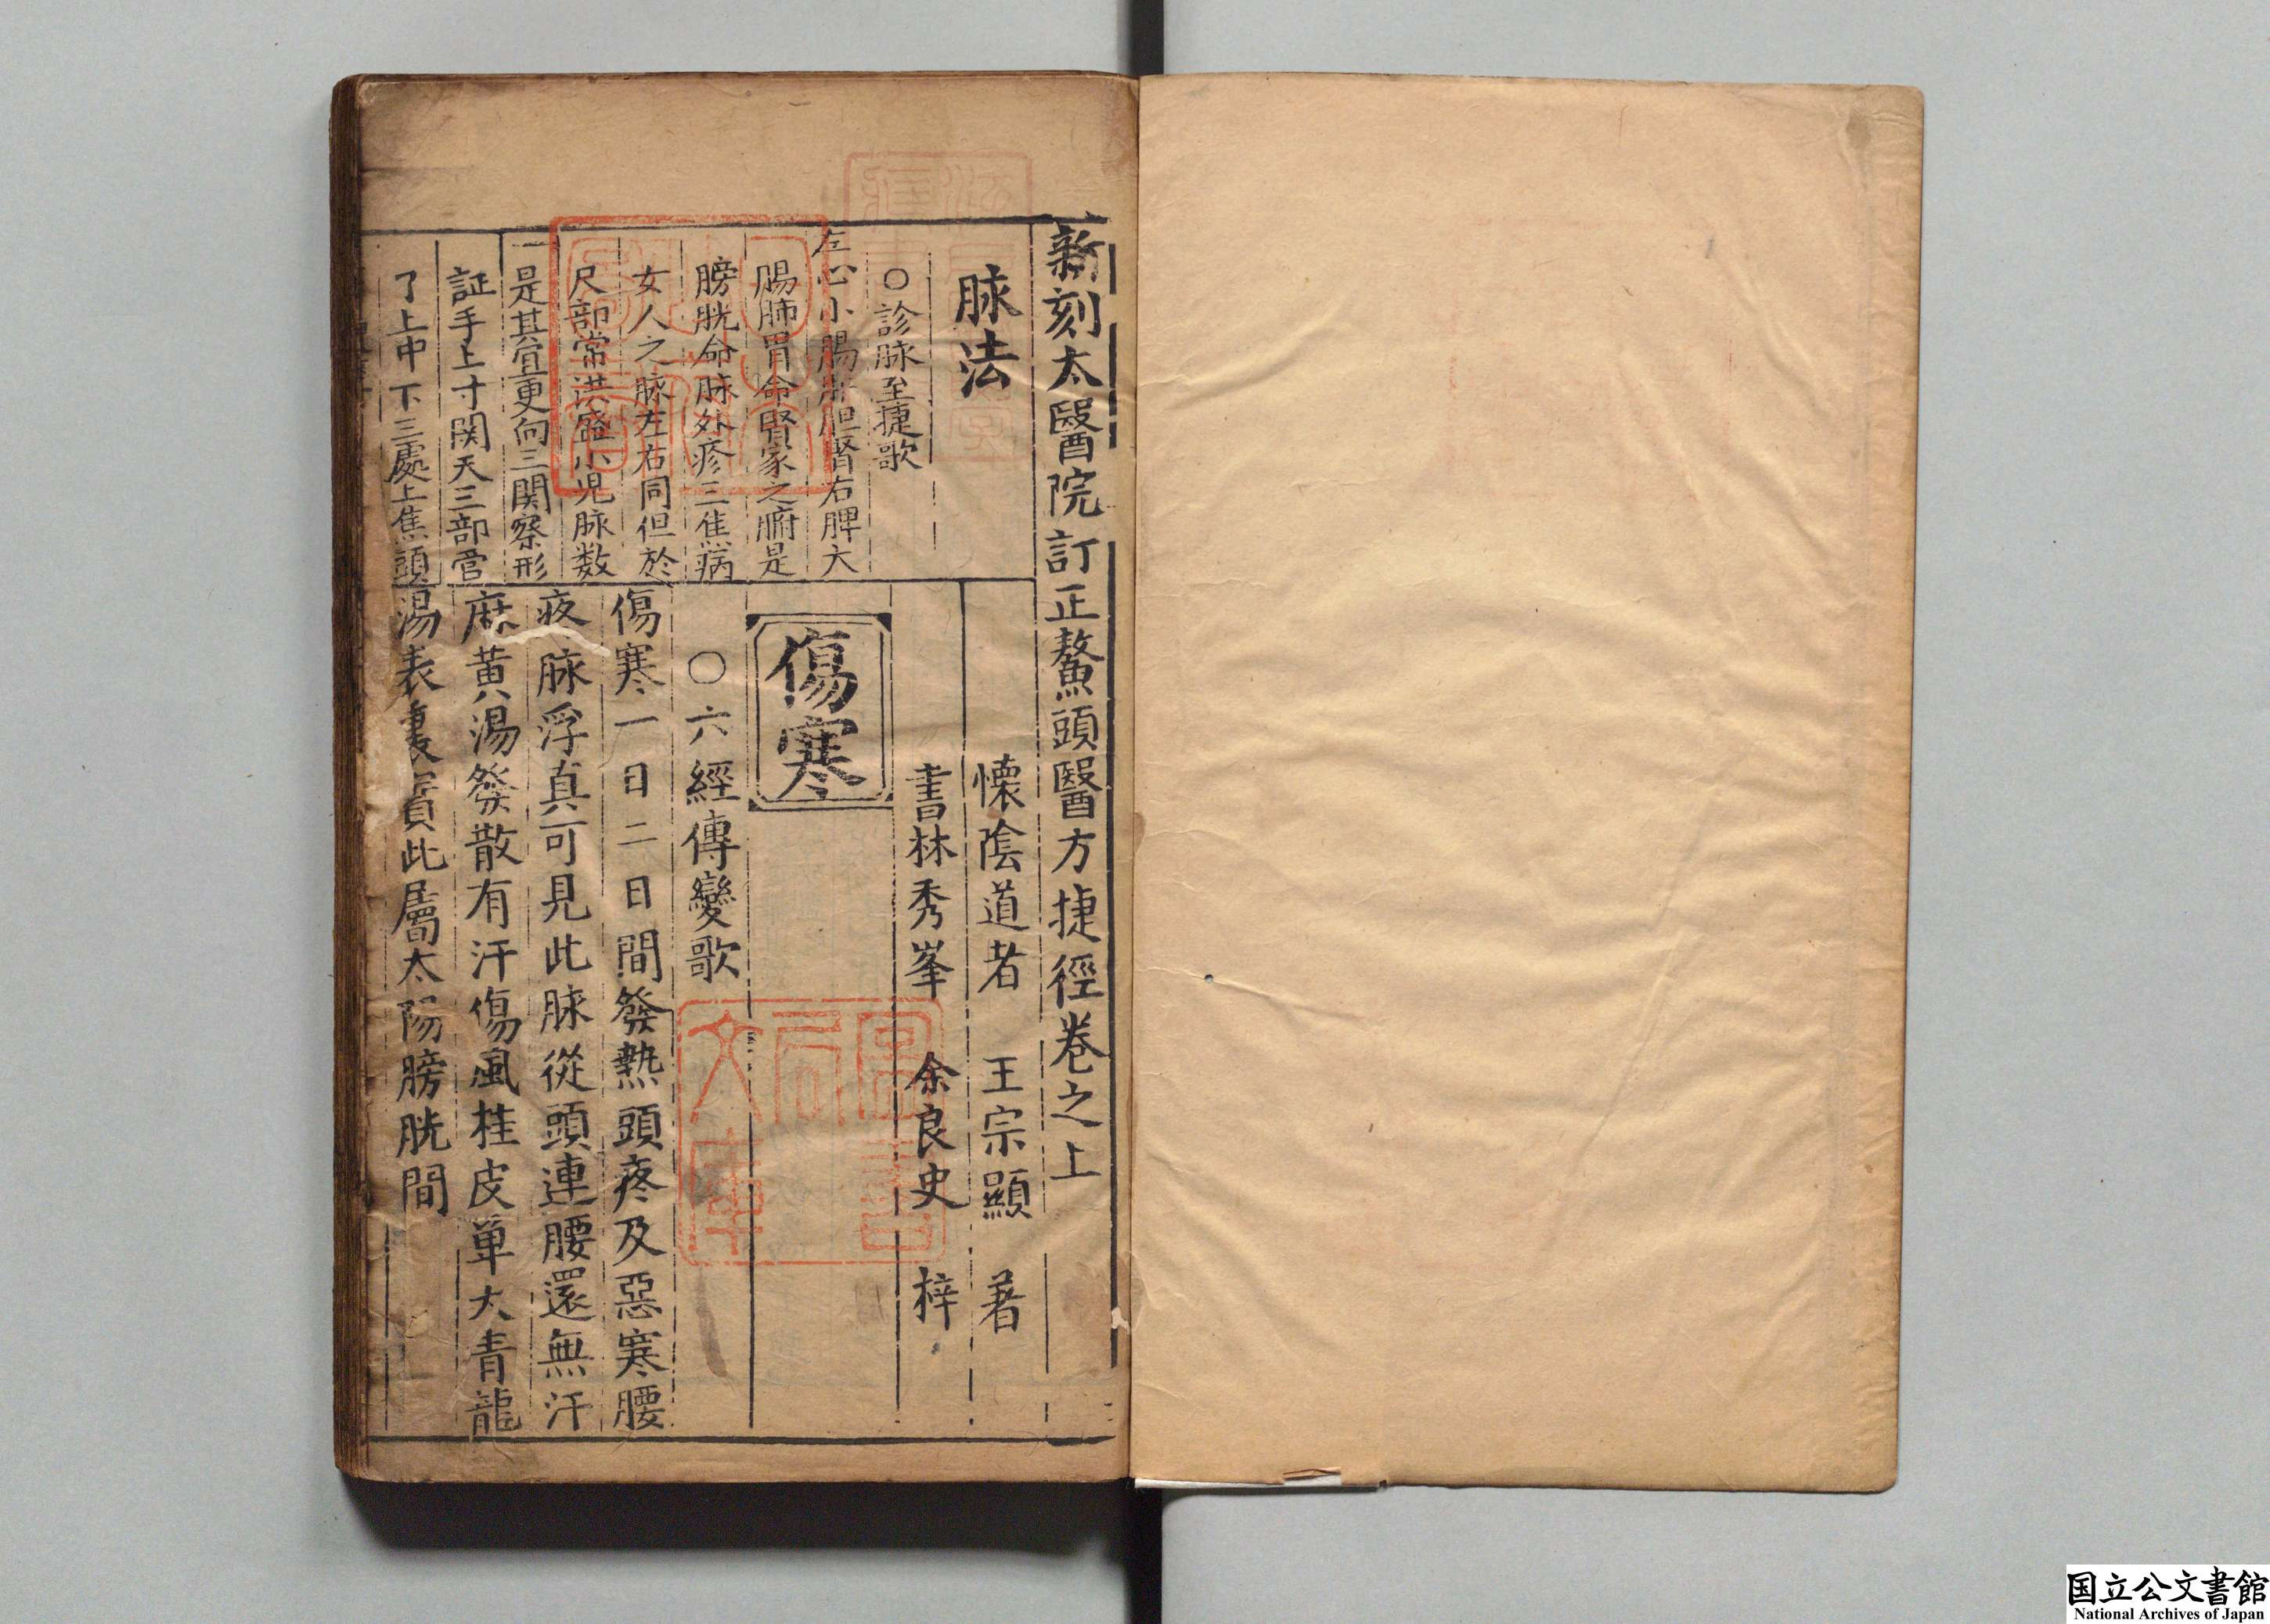 新刻太醫院訂正鰲頭醫方捷徑卷之上
脉法
○診脉至捷歌
左心小腸肝胆腎右脾大
腸肺胃命賢家之腑是
膀胱命脉外疹三焦病
女人之脉左右同但於
尺部常洪盛小児脉数
是其宜更向三関察形
証手上寸関天三部営
了上中下三處上焦頭
懐陰道者 王宗顯 著
書林秀峯 余良史 梓
傷寒
○六經傳變歌
傷寒一日二日間發熱頭疼及惡寒腰
疼脉浮真可見此脉從頭連腰還無汗
麻黄湯發散有汗傷風桂皮單大青龍
湯表裏實此屬太陽膀胱間
圖書局文庫
国立公文書館
National Archives of Japan